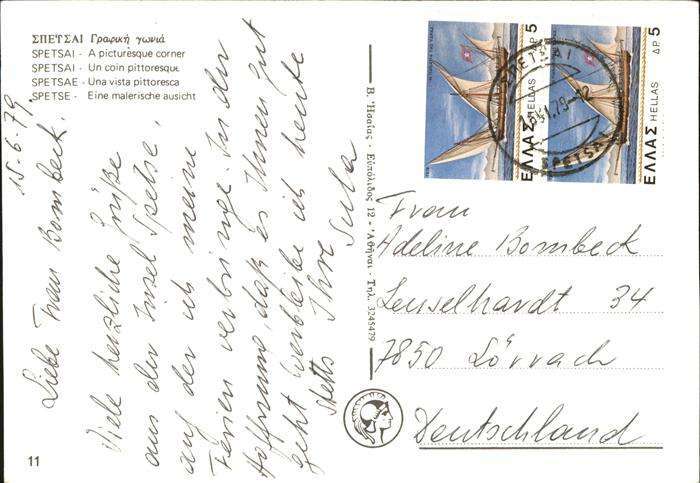 ΣΠΕΤΣΑΙ Γραφική γωνιά
SPETSAI - A picturesque corner
SPETSAI - Un coin pittoresque
SPETSAE - Una vista pittoresca
SPETSE - Eine malerische ausicht
15-6-79
Liebe Frau Bombeck.
Viele herzliche Grüße
aus der Insel Spetse,
auf der ich meine
Ferien verbringe. In der
Hoffnung, daß es Ihnen gut
geht verbleibe ich heute
stetts Ihre
Β. Ἡσαΐας · Εὐπόλιδος 12 · Ἀθῆναι · Τηλ. 3245479
ΕΛΛΑΣ HELLAS ΔΡ. 5
ΕΛΛΑΣ HELLAS ΔΡ. 5
SPETSAI
79
SPETSAI
Frau
Adeline Bombeck
Leuselhardt 34
7850 Lörrach
Deutschland
11